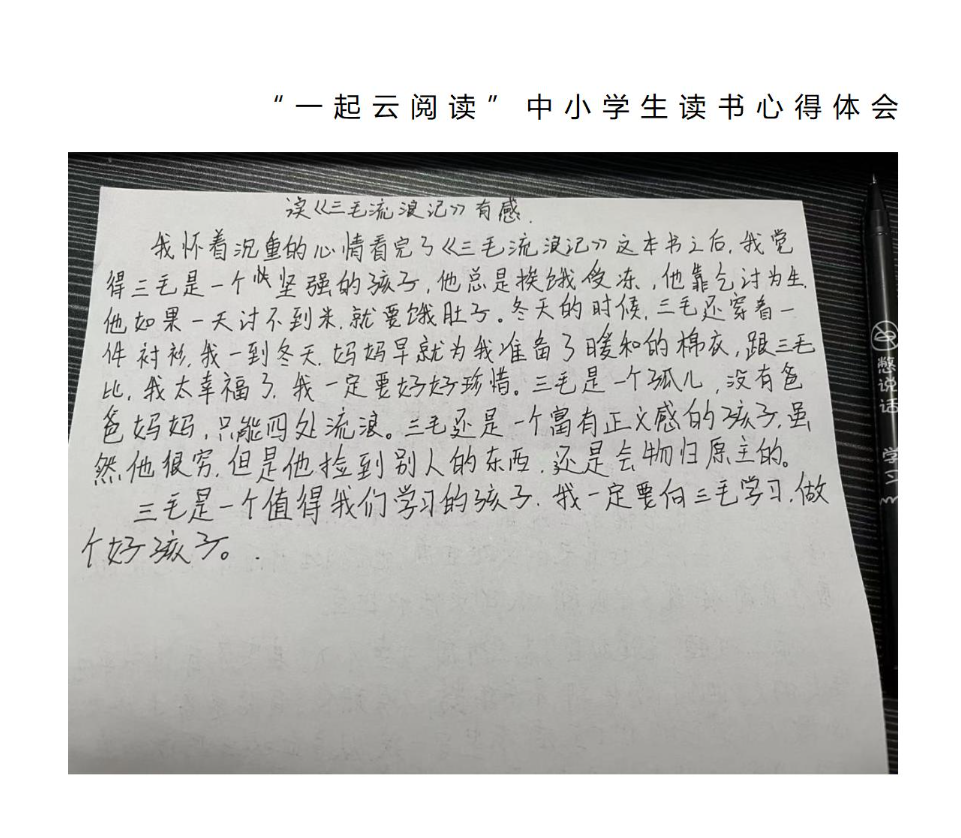 “一起云阅读”中小学生读书心得体会
读《三毛流浪记》有感.
我怀着沉重的心情看完了《三毛流浪记》这本书之后,我觉
得三毛是一个很坚强的孩子,他总是挨饿受冻,他靠乞讨为生.
他如果一天讨不到米.就要饿肚子。冬天的时候,三毛还穿着一
件衬衫,我一到冬天,妈妈早就为我准备了暖和的棉衣,跟三毛
比,我太幸福了,我一定要好好珍惜。三毛是一个孤儿,没有爸
爸妈妈,只能四处流浪。三毛还是一个富有正义感的孩子,虽
然他很穷,但是他捡到别人的东西,还是会物归原主的。
三毛是一个值得我们学习的孩子,我一定要向三毛学习,做
个好孩子。.
憋说话
学习